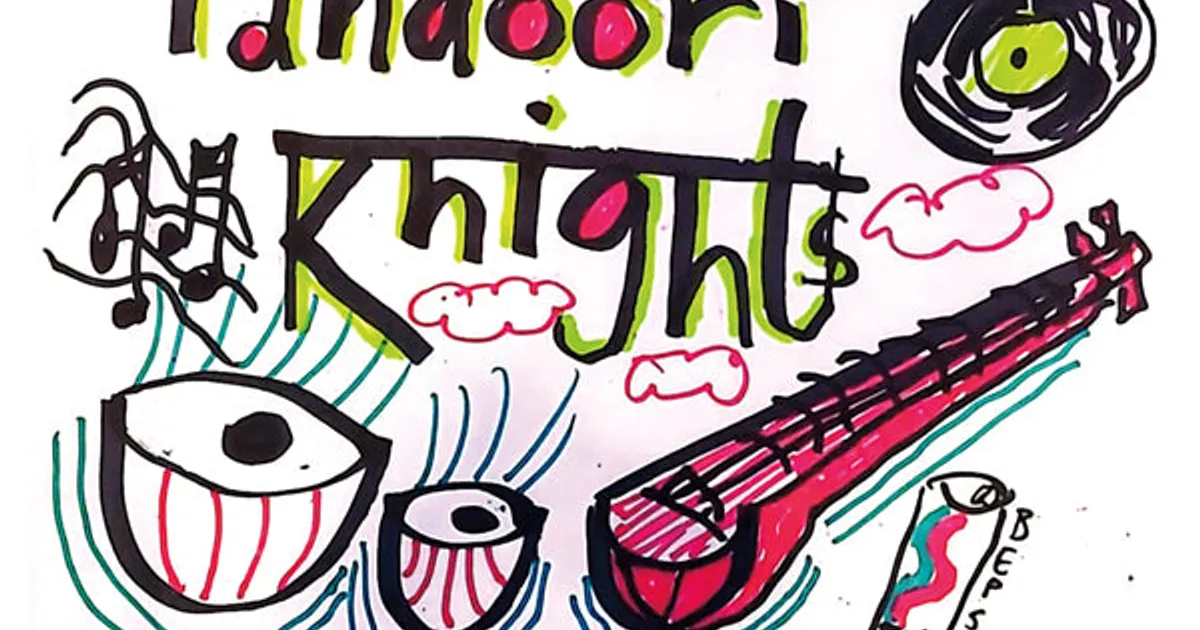 Tandoori
Knight$
BEPS